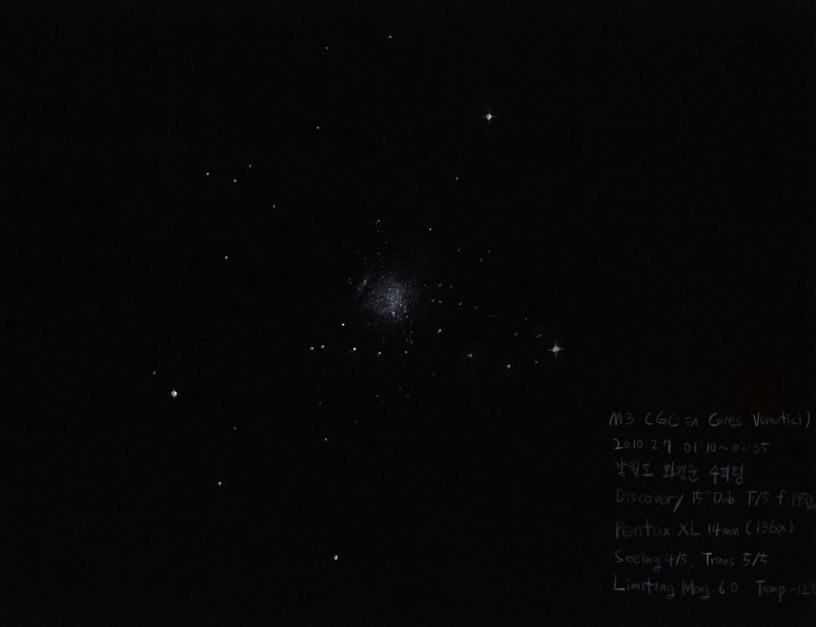 M3 (GC in Canes Venatici)
2010.2.7 01:10~02:35
강원도 화천군 수피령
Discovery 15" Dob F/5
Pentax XL 14mm (136x)
Seeing 4/5, Trans 5/5
Limiting Mag 6.0 Temp